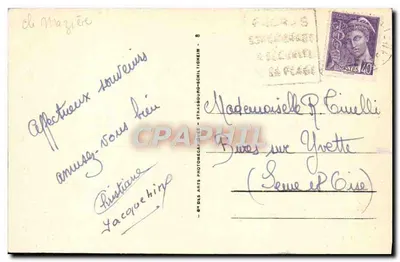 Ch Mazière
Affectueux souvenirs
amusez-vous bien
Christiane
Jacquelin
Sté DES ARTS PHOTOMÉCANIQUES - STRASBOURG-SCHILTIGHEIM - 8
SA PLAGE
POSTES
40
Mademoiselle P. Tinelli
Bures sur Yvette
(Seine et Oise)
CPArama.com